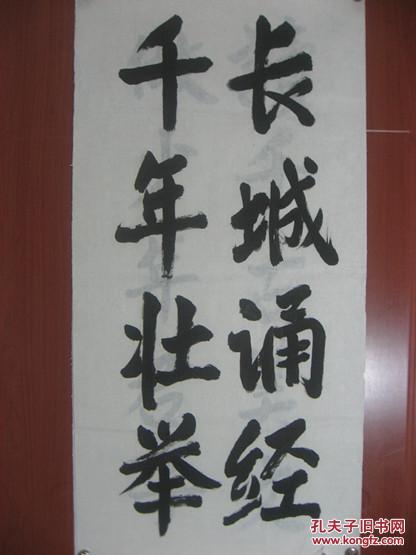 长城诵经
千年壮举
孔夫子旧书网
kongfz.com